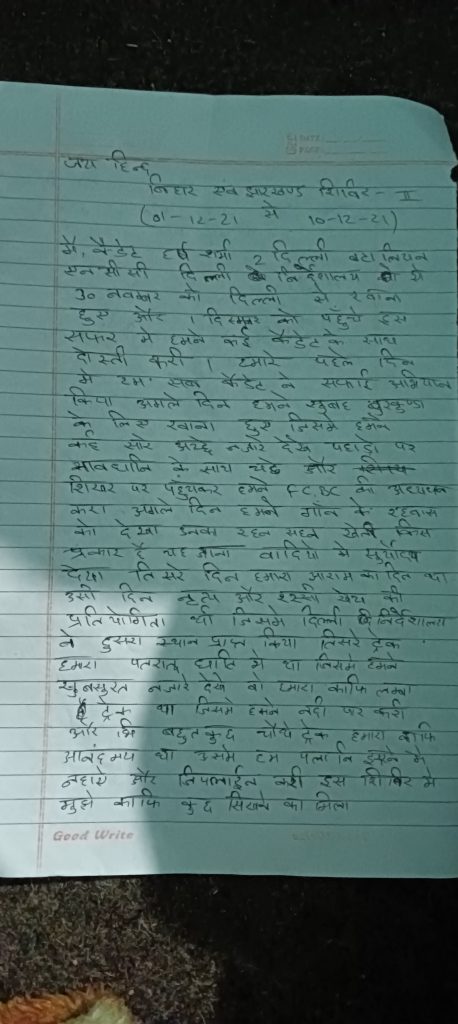 DATE
जय हिन्द
बिहार एवं झारखण्ड शिविर - II
(01-12-21 से 10-12-21)
मैं, कैडेट शर्मा 2 दिल्ली बटालियन
एनसीसी दिल्ली निर्देशालय से
30 नवम्बर को दिल्ली से रवाना
हुए और 1 दिसम्बर को पहुंचे इस
सफर में हमने कई कैडेट के साथ
दोस्ती करी । हमारे पहले दिन
में हम सब कैडेट ने सफाई अभियान
किया अगले दिन हमने सुबह
के लिए रवाना हुए जिसमें हमने
कई सारे अच्छे नजारे देखे पहाड़ो पर
सावधानि के साथ चढ़े और
शिखर पर पहुंचकर हमने FCBC की
करा अगले दिन हमने गाँव के
को देखा उनका रहन सहन खेती किस
प्रकार है यह जाना वादियो में सूर्योदय
देखा तिसरे दिन हमारा आराम का दिन था
उसी दिन नृत्य और की
प्रतियोगिता थी जिसमे दिल्ली निर्देशालय
ने दुसरा स्थान प्राप्त किया तिसरे ट्रेक
हमारा पतरातू घाटि में था जिसमे हमने
खुबसुरत नजारे देखे वो हमारा काफि लम्बा
ट्रेक था जिसमे हमने नदी पार करी
और भि बहुत कुछ चौथे ट्रेक हमारा काफि
आनंदमय था उसमे हम झरने में
नहाये और करी इस शिविर मे
मुझे काफि कुछ सिखने को मिला
Good Write